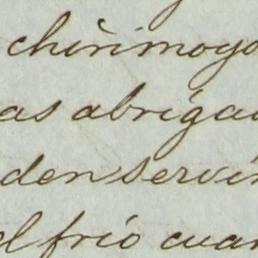 chirimoyo
as abriga
den servi
el frio cuan